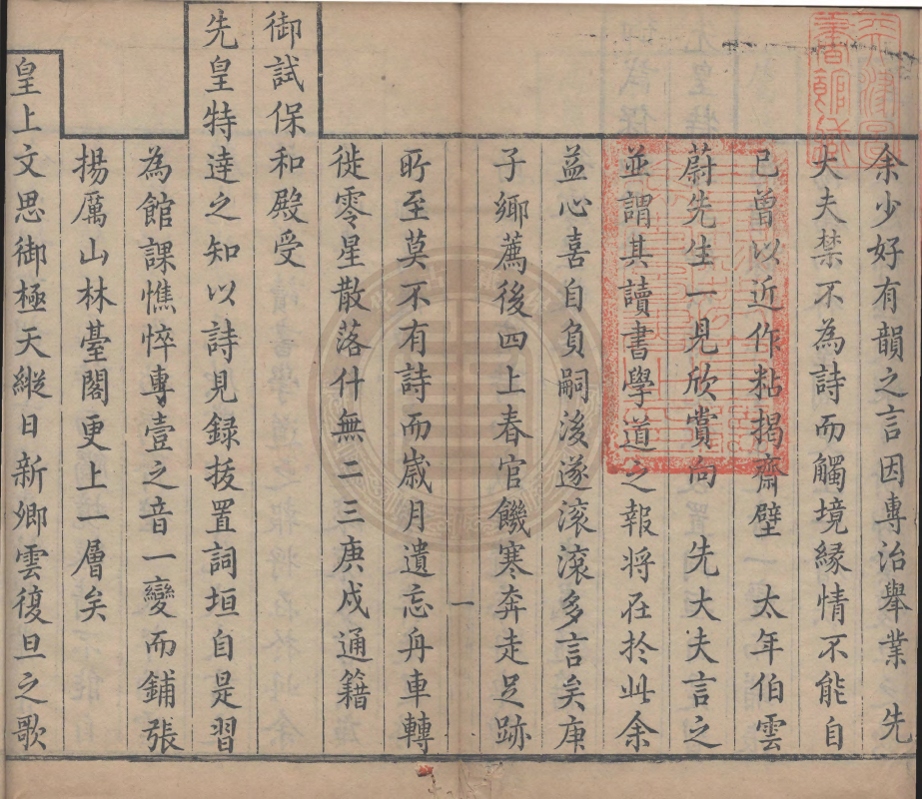 余少好有韻之言因專治舉業 先
大夫禁不為詩而觸境緣情不能自
已曾以近作粘揭齋壁一 太年伯雲
蔚先生一見欣賞向 先大夫言之
並謂其讀書學道之報將在於此余
益心喜自負嗣後遂滾滾多言矣庚
子鄉薦後四上春官饑寒奔走足跡
所至莫不有詩而歲月遺忘舟車轉
徙零星散落什無二三庚戌通籍
御試保和殿受
先皇特達之知以詩見録拔置詞垣自是習
為館課憔悴專壹之音一變而鋪張
揚厲山林臺閣更上一層矣
皇上文思御極天縱日新卿雲復旦之歌
一